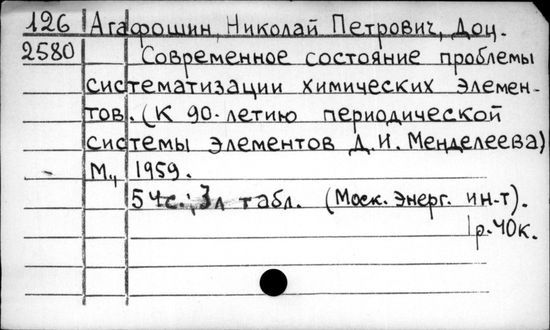 126 Агафошин, Николай Петрович, Доц.
2580 Современное состояние проблемы
систематизации химических элемен-
тов. (К 90-летию периодической
системы элементов Д.И. Менделеева)
М., 1959.
54с.; 3л табл. (Моск. энерг. ин-т).
р.40к.